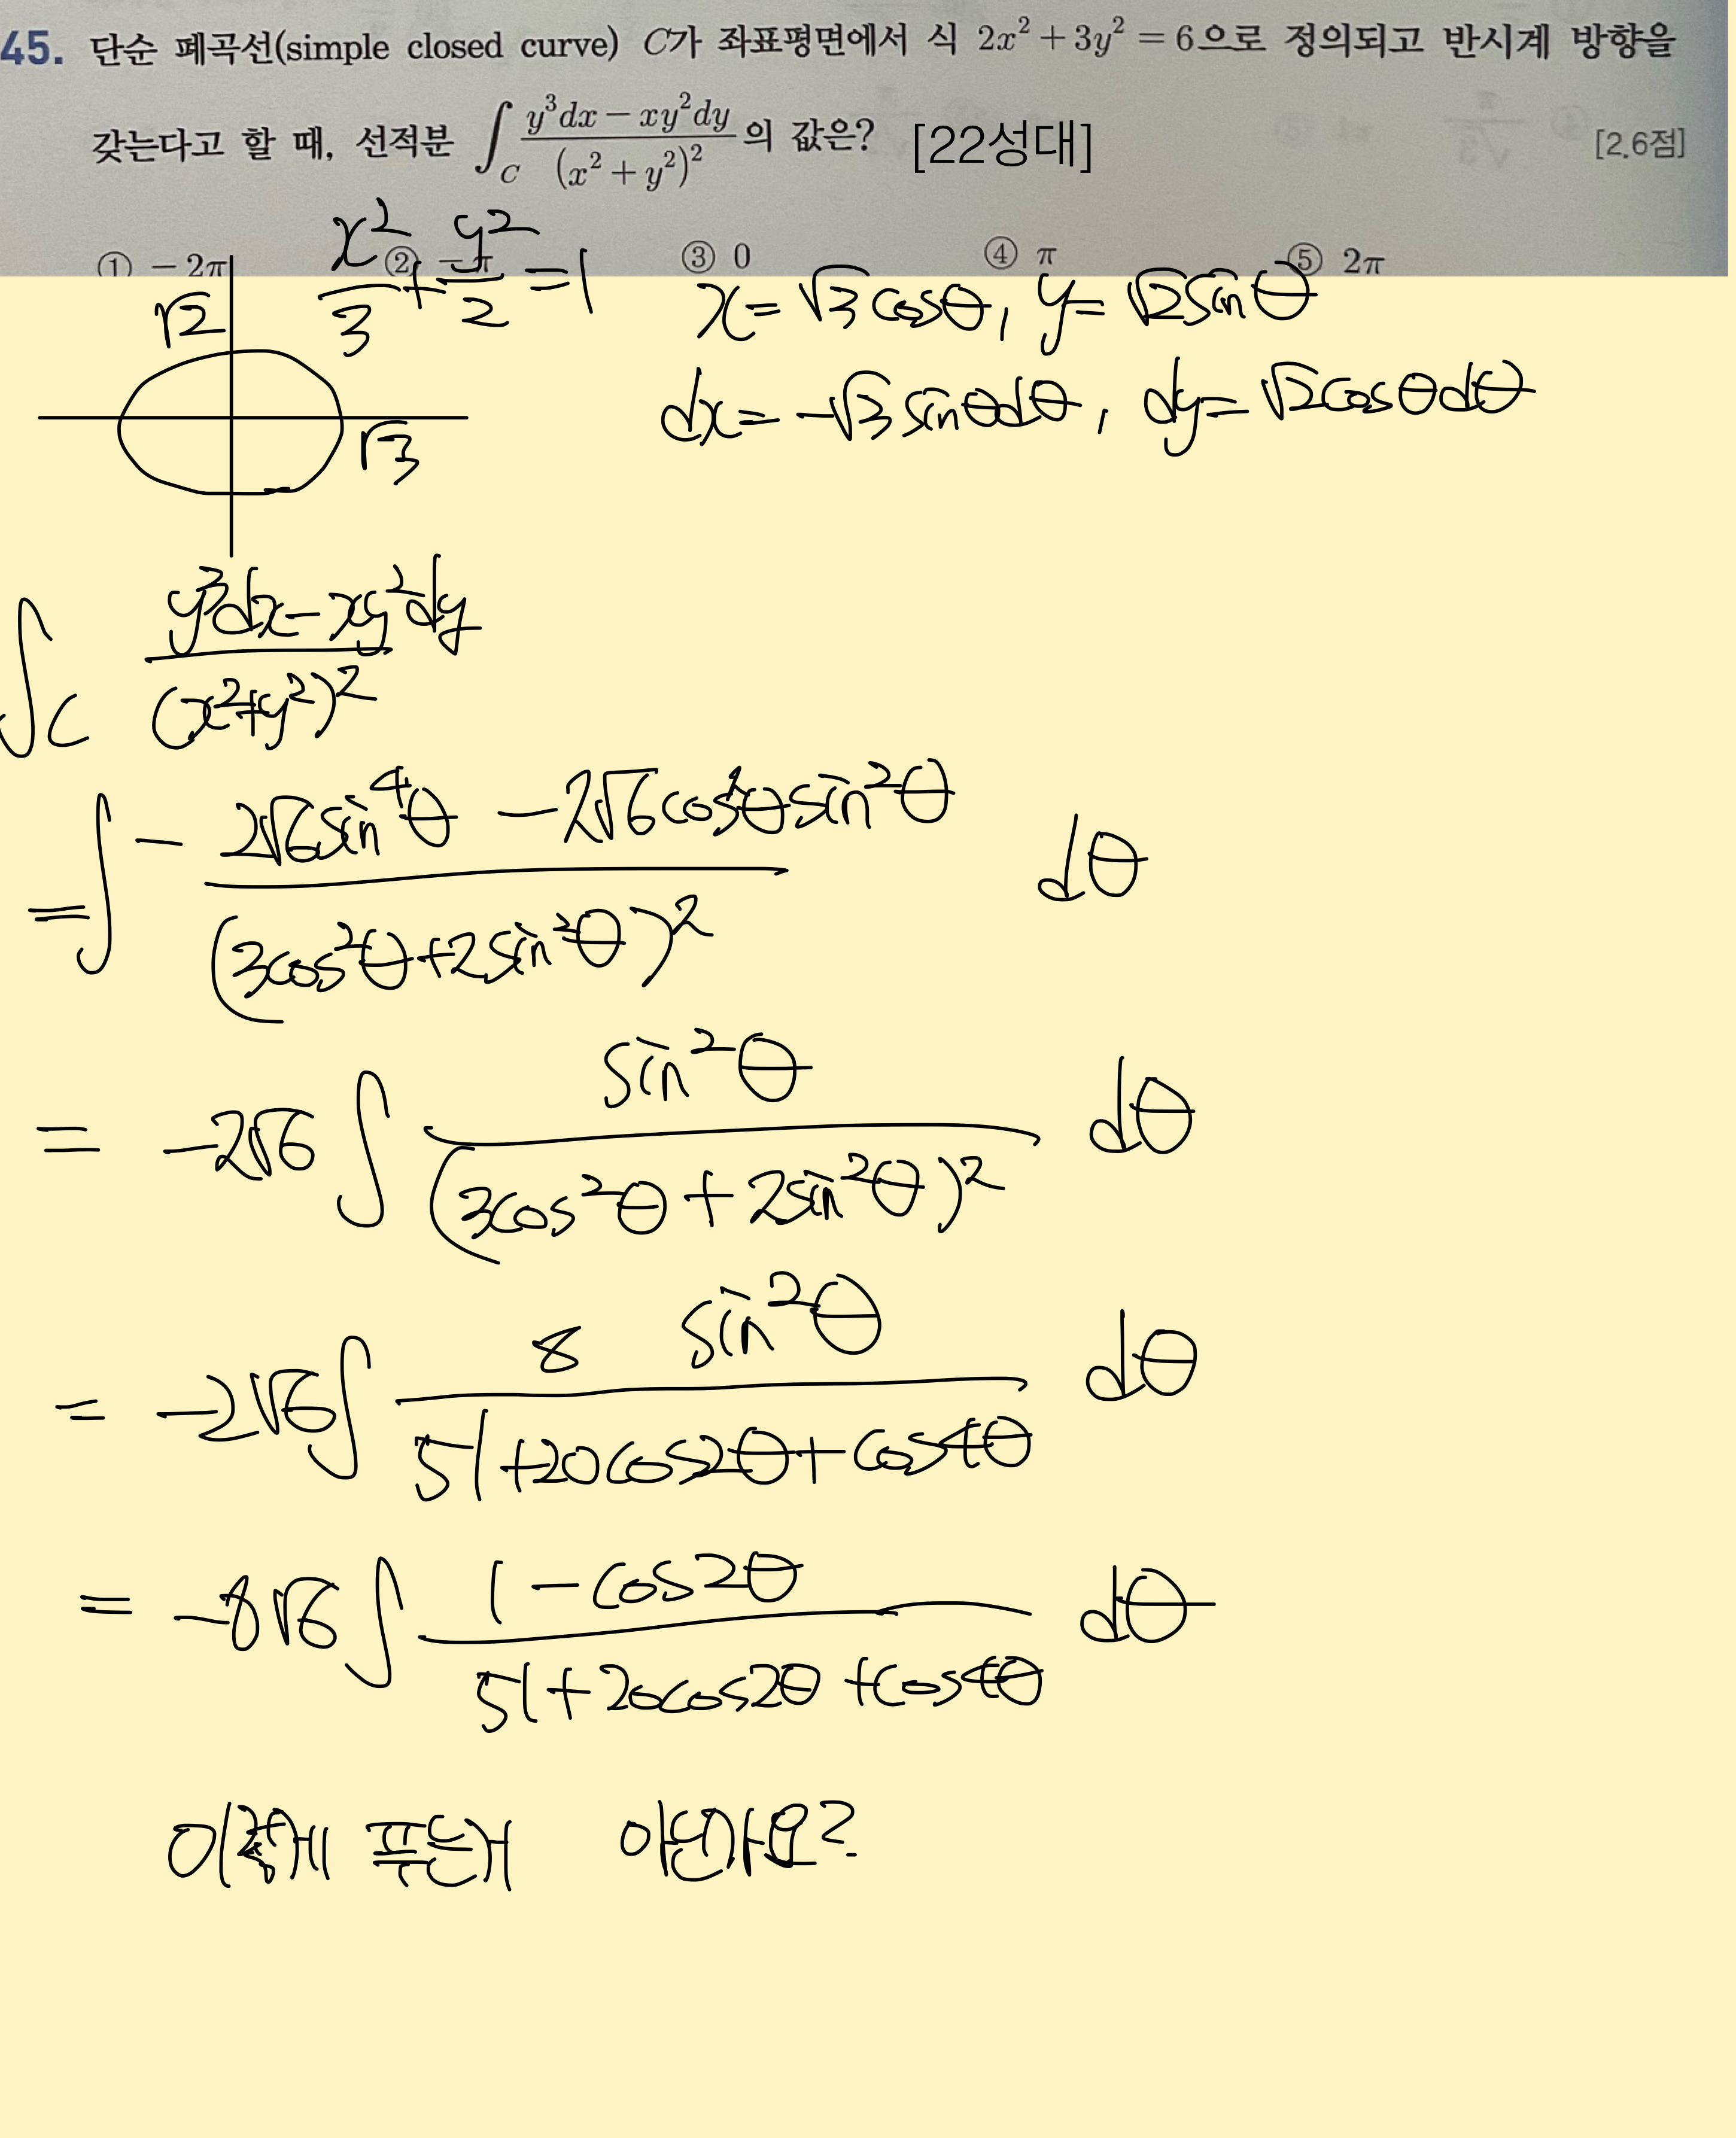 45. 단순 폐곡선(simple closed curve) C가 좌표평면에서 식 2x² + 3y² = 6으로 정의되고 반시계 방향을
갖는다고 할 때, 선적분 ∫_C (y³dx − xy²dy)/(x² + y²)² 의 값은? [22성대] [2.6점]
① −2π ② −π ③ 0 ④ π ⑤ 2π
x²/3 + y²/2 = 1
x = √3 cosθ, y = √2 sinθ
dx = −√3 sinθdθ, dy = √2 cosθdθ
√2
√3
∫_C (y³dx − xy²dy)/(x²+y²)²
= ∫ − (2√6 sin⁴θ − 2√6 cos²θ sin²θ)/(3cos²θ + 2sin²θ)² dθ
= −2√6 ∫ sin²θ/(3cos²θ + 2sin²θ)² dθ
= −2√6 ∫ 8 sin²θ/(51 + 20cos2θ + cos4θ) dθ
= −8√6 ∫ (1 − cos2θ)/(51 + 20cos2θ + cos4θ) dθ
이렇게 푸는게 아닌가요?